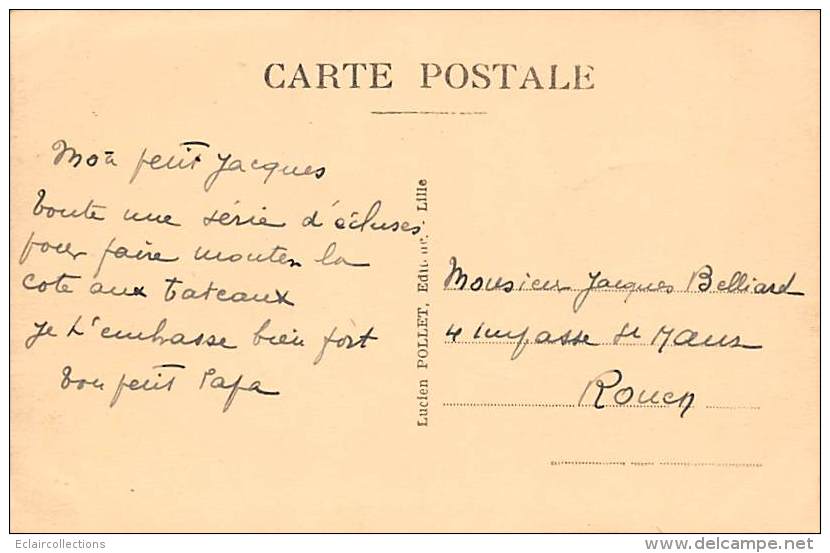 CARTE POSTALE
Mon petit Jacques
toute une série d'écluses
pour faire monter la
cote aux bateaux
je t'embrasse bien fort
ton petit Papa
Lucien POLLET, Editeur, - Lille
Monsieur Jacques Belliard
4 impasse St Maur
Rouen
Eclaircollections
www.delcampe.net